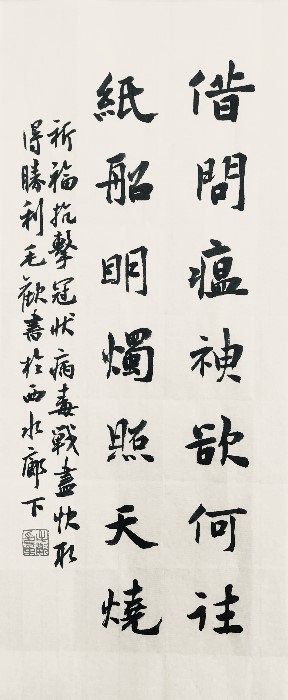 借問瘟神欲何往
紙船明燭照天燒
祈福抗擊冠狀病毒戰盡快取
得勝利毛歡書於西水廊下